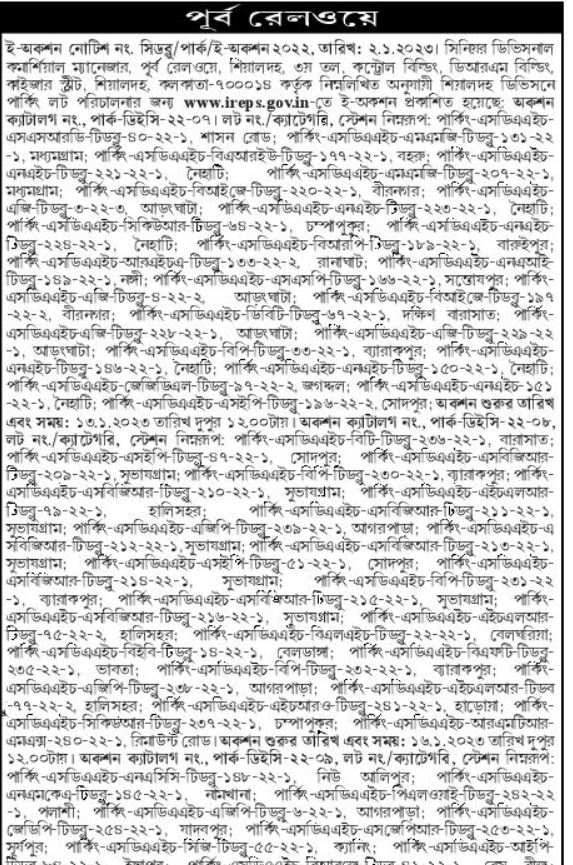 পূর্ব রেলওয়ে
ই-অকশন নোটিশ নং. সিডব্লু/পার্ক/ই-অকশন২০২২, তারিখ: ২.১.২০২৩। সিনিয়র ডিভিসনাল
কমার্শিয়াল ম্যানেজার, পূর্ব রেলওয়ে, শিয়ালদহ, ৩য় তল, কন্ট্রোল বিল্ডিং, ডিআরএম বিল্ডিং,
কাইজার স্ট্রীট, শিয়ালদহ, কলকাতা-৭০০০১৪ কর্তৃক নিম্নলিখিত অনুযায়ী শিয়ালদহ ডিভিসনে
পার্কিং লট পরিচালনার জন্য www.ireps.gov.in-তে ই-অকশন প্রকাশিত হয়েছে: অকশন
ক্যাটালগ নং., পার্ক-ডিইসি-২২-০৭। লট নং./ক্যাটেগরি, স্টেশন নিম্নরূপ: পার্কিং-এসডিএএইচ-
এসএসআরডি-টিডব্লু-৪০-২২-১, শাসন রোড; পার্কিং-এসডিএএইচ-এমএমজি-টিডব্লু-১৩১-২২
-১, মধ্যমগ্রাম; পার্কিং-এসডিএএইচ-বিএআরইউ-টিডব্লু-১৭৭-২২-১, বহরু; পার্কিং-এসডিএএইচ-
এনএইচ-টিডব্লু-২২১-২২-১, নৈহাটি; পার্কিং-এসডিএএইচ-এমএমজি-টিডব্লু-২০৭-২২-১,
মধ্যমগ্রাম; পার্কিং-এসডিএএইচ-বিআইজে-টিডব্লু-২২০-২২-১, বীরনগর; পার্কিং-এসডিএএইচ-
এজি-টিডব্লু-৩-২২-৩, আড়ংঘাটা; পার্কিং-এসডিএএইচ-এনএইচ-টিডব্লু-২২৩-২২-১, নৈহাটি;
পার্কিং-এসডিএএইচ-সিকিউআর-টিডব্লু-৬৪-২২-১, চম্পাপুকুর; পার্কিং-এসডিএএইচ-এনএইচ-
টিডব্লু-২২৪-২২-১, নৈহাটি; পার্কিং-এসডিএএইচ-বিআরপি-টিডব্লু-১৮৯-২২-১, বারুইপুর;
পার্কিং-এসডিএএইচ-আরএইচএ-টিডব্লু-১৩৩-২২-২, রানাঘাট; পার্কিং-এসডিএএইচ-এনএআই-
টিডব্লু-১৪৯-২২-১, নঙ্গী; পার্কিং-এসডিএএইচ-এসএসপি-টিডব্লু-১৬৬-২২-১, সন্তোষপুর; পার্কিং-
এসডিএএইচ-এজি-টিডব্লু-৪-২২-২, আড়ংঘাটা; পার্কিং-এসডিএএইচ-বিআইজে-টিডব্লু-১৯৭
-২২-২, বীরনগর; পার্কিং-এসডিএএইচ-ডিবিটি-টিডব্লু-৬৭-২২-১, দক্ষিণ বারাসাত; পার্কিং-
এসডিএএইচ-এজি-টিডব্লু-২২৮-২২-১, আড়ংঘাটা; পার্কিং-এসডিএএইচ-এজি-টিডব্লু-২২৯-২২
-১, আড়ংঘাটা; পার্কিং-এসডিএএইচ-বিপি-টিডব্লু-৩৩-২২-১, ব্যারাকপুর; পার্কিং-এসডিএএইচ-
এনএইচ-টিডব্লু-১৪৬-২২-১, নৈহাটি; পার্কিং-এসডিএএইচ-এনএইচ-টিডব্লু-১৫০-২২-১, নৈহাটি;
পার্কিং-এসডিএএইচ-জেজিডিএল-টিডব্লু-৯৭-২২-২, জগদ্দল; পার্কিং-এসডিএএইচ-এনএইচ-১৫১
-২২-১, নৈহাটি; পার্কিং-এসডিএএইচ-এসইপি-টিডব্লু-১৯৬-২২-২, সোদপুর; অকশন শুরুর তারিখ
এবং সময়: ১৩.১.২০২৩ তারিখ দুপুর ১২.০০টায়। অকশন ক্যাটালগ নং., পার্ক-ডিইসি-২২-০৮,
লট নং/ক্যাটেগরি, স্টেশন নিম্নরূপ: পার্কিং-এসডিএএইচ-বিটি-টিডব্লু-২৩৬-২২-১, বারাসাত;
পার্কিং-এসডিএএইচ-এসইপি-টিডব্লু-৪৭-২২-১, সোদপুর; পার্কিং-এসডিএএইচ-এসবিজিআর-
টিডব্লু-২০৯-২২-১, সুভাষগ্রাম; পার্কিং-এসডিএএইচ-বিপি-টিডব্লু-২৩০-২২-১, ব্যারাকপুর; পার্কিং-
এসডিএএইচ-এসবিজিআর-টিডব্লু-২১০-২২-১, সুভাষগ্রাম; পার্কিং-এসডিএএইচ-এইচএলআর-
টিডব্লু-৭৯-২২-১, হালিসহর; পার্কিং-এসডিএএইচ-এসবিজিআর-টিডব্লু-২১১-২২-১,
সুভাষগ্রাম; পার্কিং-এসডিএএইচ-এজিপি-টিডব্লু-২৩৯-২২-১, আগরপাড়া; পার্কিং-এসডিএএইচ-এ
সবিজিআর-টিডব্লু-২১২-২২-১, সুভাষগ্রাম; পার্কিং-এসডিএএইচ-এসবিজিআর-টিডব্লু-২১৩-২২-১,
সুভাষগ্রাম; পার্কিং-এসডিএএইচ-এসইপি-টিডব্লু-৫১-২২-১, সোদপুর; পার্কিং-এসডিএএইচ-
এসবিজিআর-টিডব্লু-২১৪-২২-১, সুভাষগ্রাম; পার্কিং-এসডিএএইচ-বিপি-টিডব্লু-২৩১-২২
-১, ব্যারাকপুর; পার্কিং-এসডিএএইচ-এসবিজিআর-টিডব্লু-২১৫-২২-১, সুভাষগ্রাম; পার্কিং-
এসডিএএইচ-এসবিজিআর-টিডব্লু-২১৬-২২-১, সুভাষগ্রাম; পার্কিং-এসডিএএইচ-এইচএলআর-
টিডব্লু-৭৫-২২-২, হালিসহর; পার্কিং-এসডিএএইচ-বিএলএইচ-টিডব্লু-২২-২২-১, বেলঘরিয়া;
পার্কিং-এসডিএএইচ-বিইবি-টিডব্লু-১৪-২২-১, বেলডাঙ্গা; পার্কিং-এসডিএএইচ-বিএফটি-টিডব্লু-
২৩৫-২২-১, ভাবতা; পার্কিং-এসডিএএইচ-বিপি-টিডব্লু-২৩২-২২-১, ব্যারাকপুর; পার্কিং-
এসডিএএইচ-এজিপি-টিডব্লু-২৩৮-২২-১, আগরপাড়া; পার্কিং-এসডিএএইচ-এইচএলআর-টিডব
-৭৭-২২-২, হালিসহর; পার্কিং-এসডিএএইচ-এইচআরও-টিডব্লু-২৪১-২২-১, হাড়োয়া; পার্কিং-
এসডিএএইচ-সিকিউআর-টিডব্লু-২৩৭-২২-১, চম্পাপুকুর; পার্কিং-এসডিএএইচ-আরএমটিআর-
এমএক্স-২৪০-২২-১, রিমাউন্ট রোড। অকশন শুরুর তারিখ এবং সময়: ১৬.১.২০২৩ তারিখ দুপুর
১২.০০টায়। অকশন ক্যাটালগ নং., পার্ক-ডিইসি-২২-০৯, লট নং/ক্যাটেগরি, স্টেশন নিম্নরূপ:
পার্কিং-এসডিএএইচ-এনএসিসি-টিডব্লু-১৪৮-২২-১, নিউ আলিপুর; পার্কিং-এসডিএএইচ-
এনএমকেএ-টিডব্লু-১৪৫-২২-১, নামখানা; পার্কিং-এসডিএএইচ-পিএলওয়াই-টিডব্লু-২৪২-২২
-১, পলাশী; পার্কিং-এসডিএএইচ-এজিপি-টিডব্লু-৬-২২-১, আগরপাড়া; পার্কিং-এসডিএএইচ-
জেডিপি-টিডব্লু-২৫৪-২২-১, যাদবপুর; পার্কিং-এসডিএএইচ-এসজেপিআর-টিডব্লু-২৫৩-২২-১,
সূর্যপুর; পার্কিং-এসডিএএইচ-সিজি-টিডব্লু-৫৫-২২-১, ক্যানিং; পার্কিং-এসডিএএইচ-আইপি-